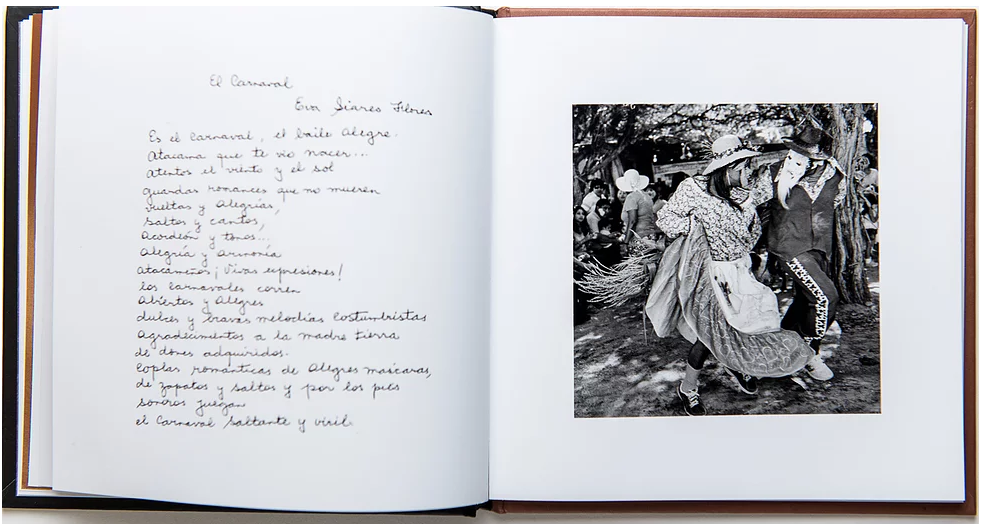 El Carnaval
Eva Siares Flores
Es el Carnaval, el baile Alegre.
Atacama que te vio nacer...
atentos el viento y el sol
guardas romances que no mueren
vueltas y Alegrías,
saltos y cantos,
Acordeón y tonos...
Alegría y Armonía
atacameños ¡Vivas expresiones!
los Carnavales corren
Abiertos y Alegres
dulces y bravas melodías Costumbristas
Agradecimientos a la madre tierra
de dones adquiridos.
Coplas románticas de Alegres mascaras,
de zapatos y saltos y por los pies
sonoros juegan
el Carnaval saltante y viril.